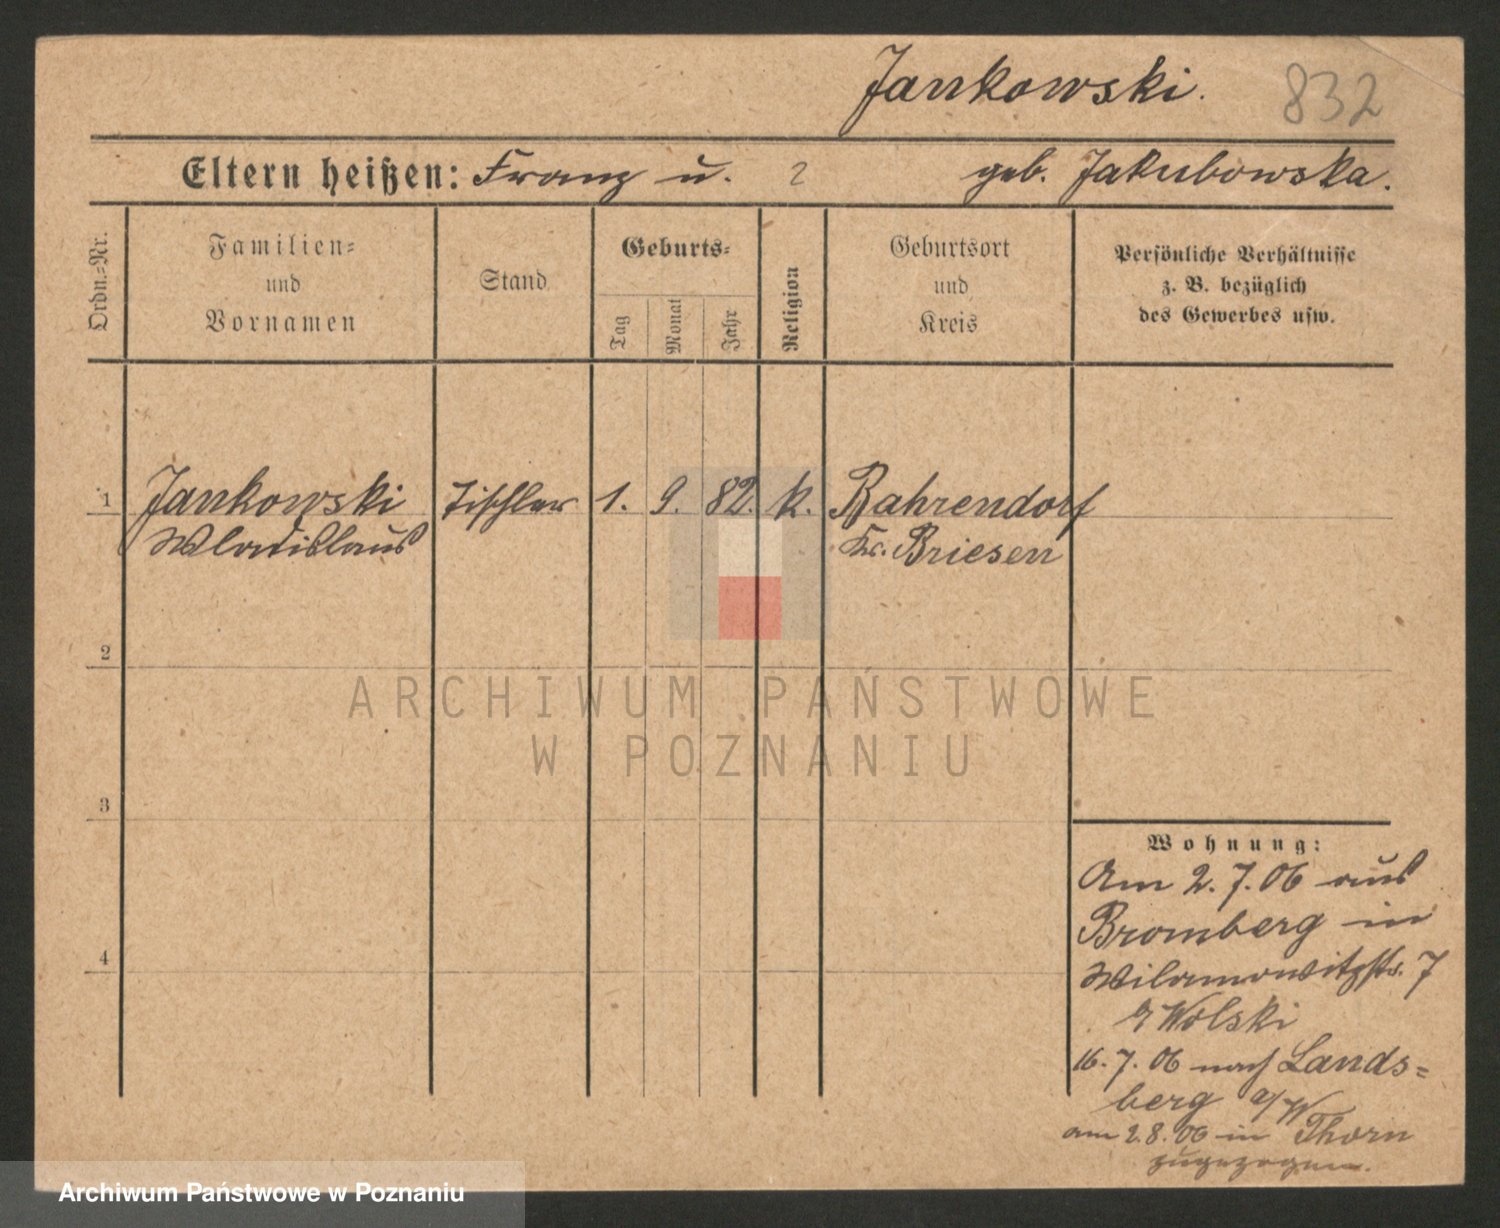 Jankowski.
832
Eltern heißen: Franz u. ? geb. Jakubowska.
Ordn.=Nr.
Familien=
und
Vornamen
Stand
Geburts=
Tag
Monat
Jahr
Religion
Geburtsort
und
Kreis
Persönliche Verhältnisse
z. B. bezüglich
des Gewerbes usw.
1 Jankowski Tischler 1. 9. 82. k. Bahrendorf
Wladislaus Kr. Briesen
2
ARCHIWUM PAŃSTWOWE
W POZNANIU
3
Wohnung:
Am 2.7.06 aus
Bromberg in
4
Wilamowitzstr. 7
Wolski
16.7.06 nach Lands=
berg a/W
am 2.8.06 in Thorn
zugezogen.
Archiwum Państwowe w Poznaniu